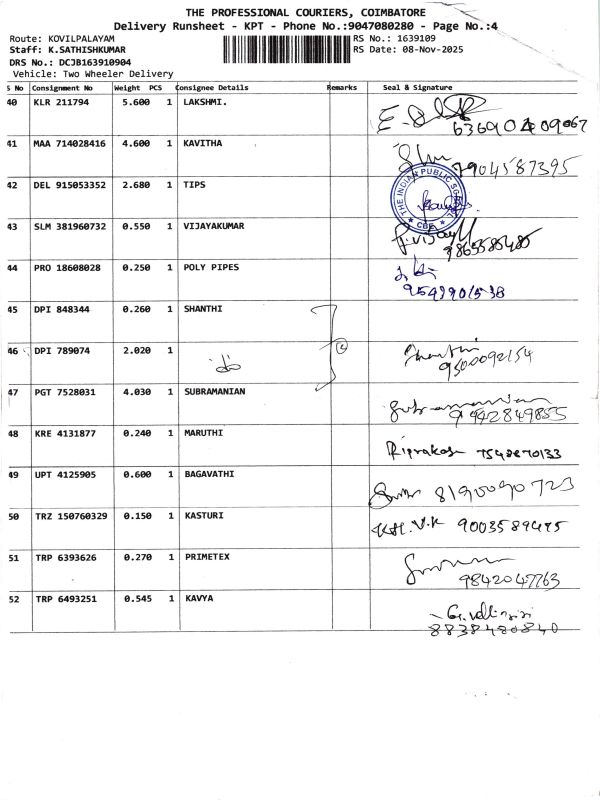 THE PROFESSIONAL COURIERS, COIMBATORE
Delivery Runsheet - KPT - Phone No.:9047080280 - Page No.:4
Route: KOVILPALAYAM RS No.: 1639109
Staff: K.SATHISHKUMAR RS Date: 08-Nov-2025
DRS No.: DCJB163910904
Vehicle: Two Wheeler Delivery
S No Consignment No Weight PCS Consignee Details Remarks Seal & Signature
40 KLR 211794 5.600 1 LAKSHMI.
63690409067
41 MAA 714028416 4.600 1 KAVITHA
7904587395
42 DEL 915053352 2.680 1 TIPS THE INDIAN PUBLIC CBE
43 SLM 381960732 0.550 1 VIJAYAKUMAR
44 PRO 18608028 0.250 1 POLY PIPES
45 DPI 848344 0.260 1 SHANTHI
46 DPI 789074 2.020 1 Shanthi
9500092154
47 PGT 7528031 4.030 1 SUBRAMANIAN
Subramanian
9442849855
48 KRE 4131877 0.240 1 MARUTHI
49 UPT 4125905 0.600 1 BAGAVATHI 8190090723
50 TRZ 150760329 0.150 1 KASTURI
51 TRP 6393626 0.270 1 PRIMETEX
9842047763
52 TRP 6493251 0.545 1 KAVYA
8838480840